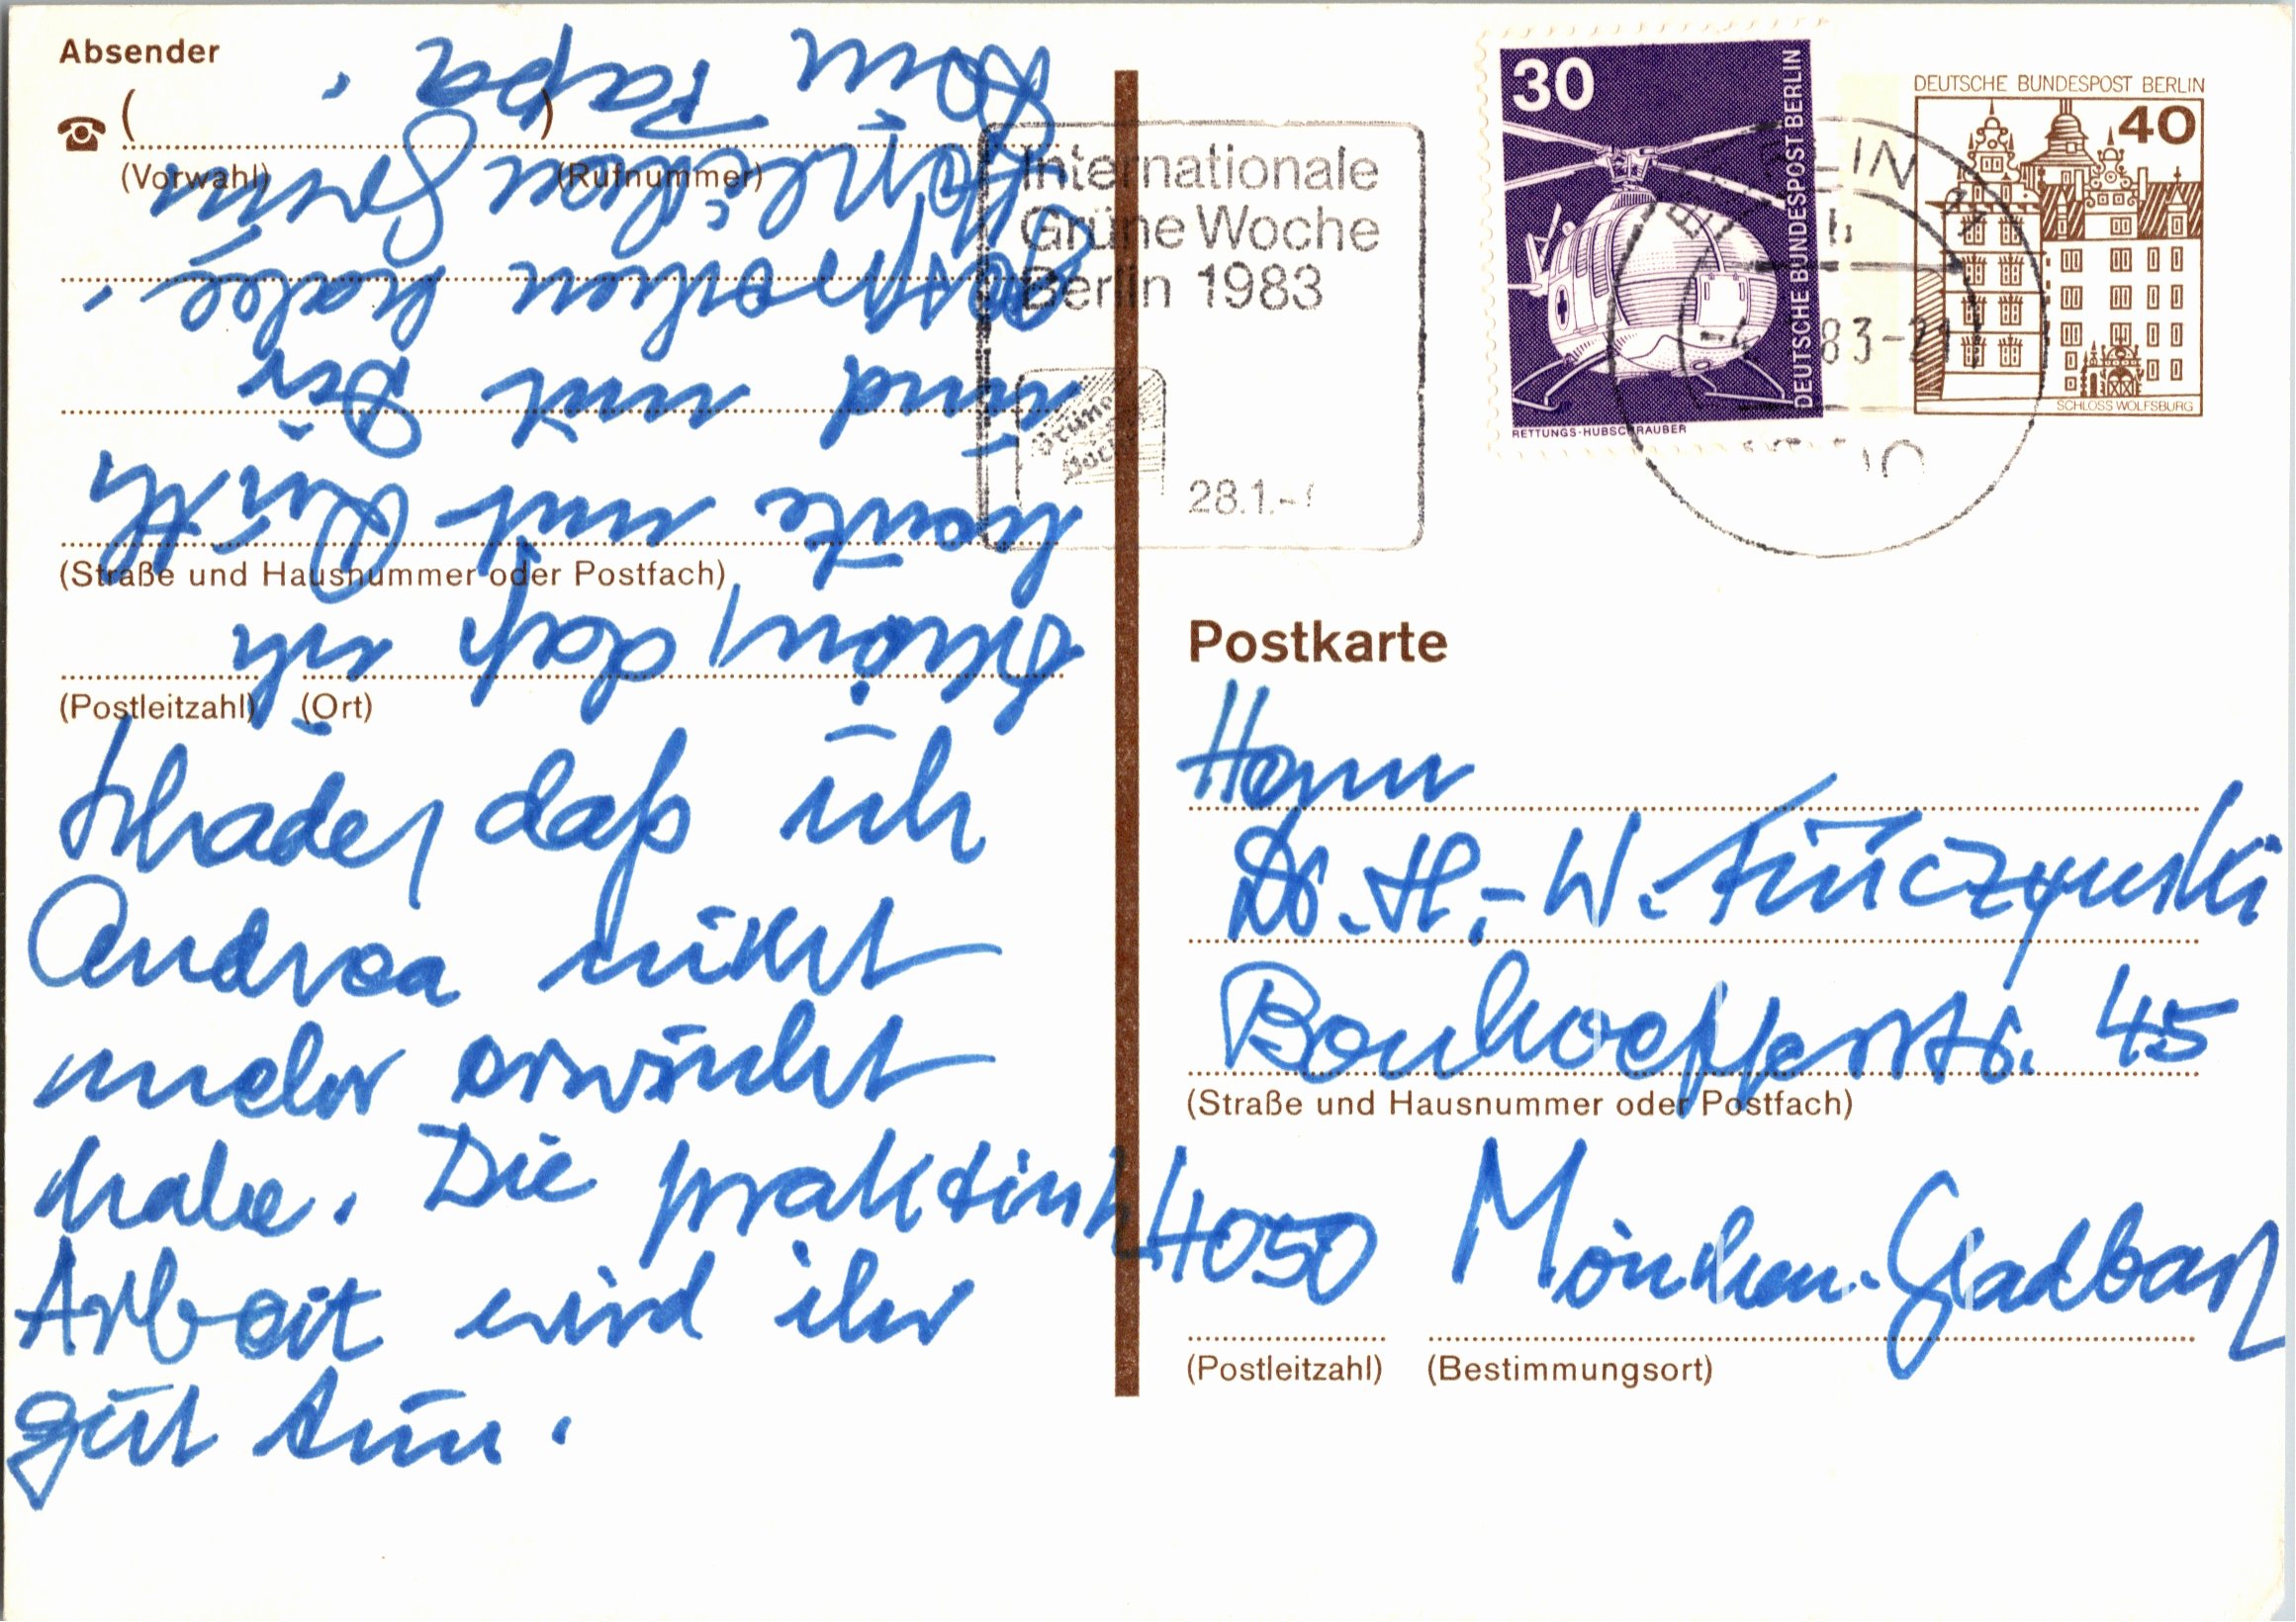 Absender
(Vorwahl) (Rufnummer)
(Straße und Hausnummer oder Postfach)
(Postleitzahl) (Ort)
Schade, daß ich
Andrea nicht
mehr erwischt
habe. Die praktisch
Arbeit wird ihr
gut tun.
Schön, daß ich
heute mit Ruth
und mit Dir
gesprochen habe.
Herzlichen Gruß
Dein Papa.
Internationale
Grüne Woche
Berlin 1983
Grüne
Woche
28.1.-
30
DEUTSCHE BUNDESPOST BERLIN
RETTUNGS-HUBSCHRAUBER
DEUTSCHE BUNDESPOST BERLIN
40
SCHLOSS WOLFSBURG
BERLIN
83-21
Postkarte
Herrn
Dr. H.-W.
Bonhoefferstr. 45
(Straße und Hausnummer oder Postfach)
4050 Mönchen-Gladbach
(Postleitzahl) (Bestimmungsort)